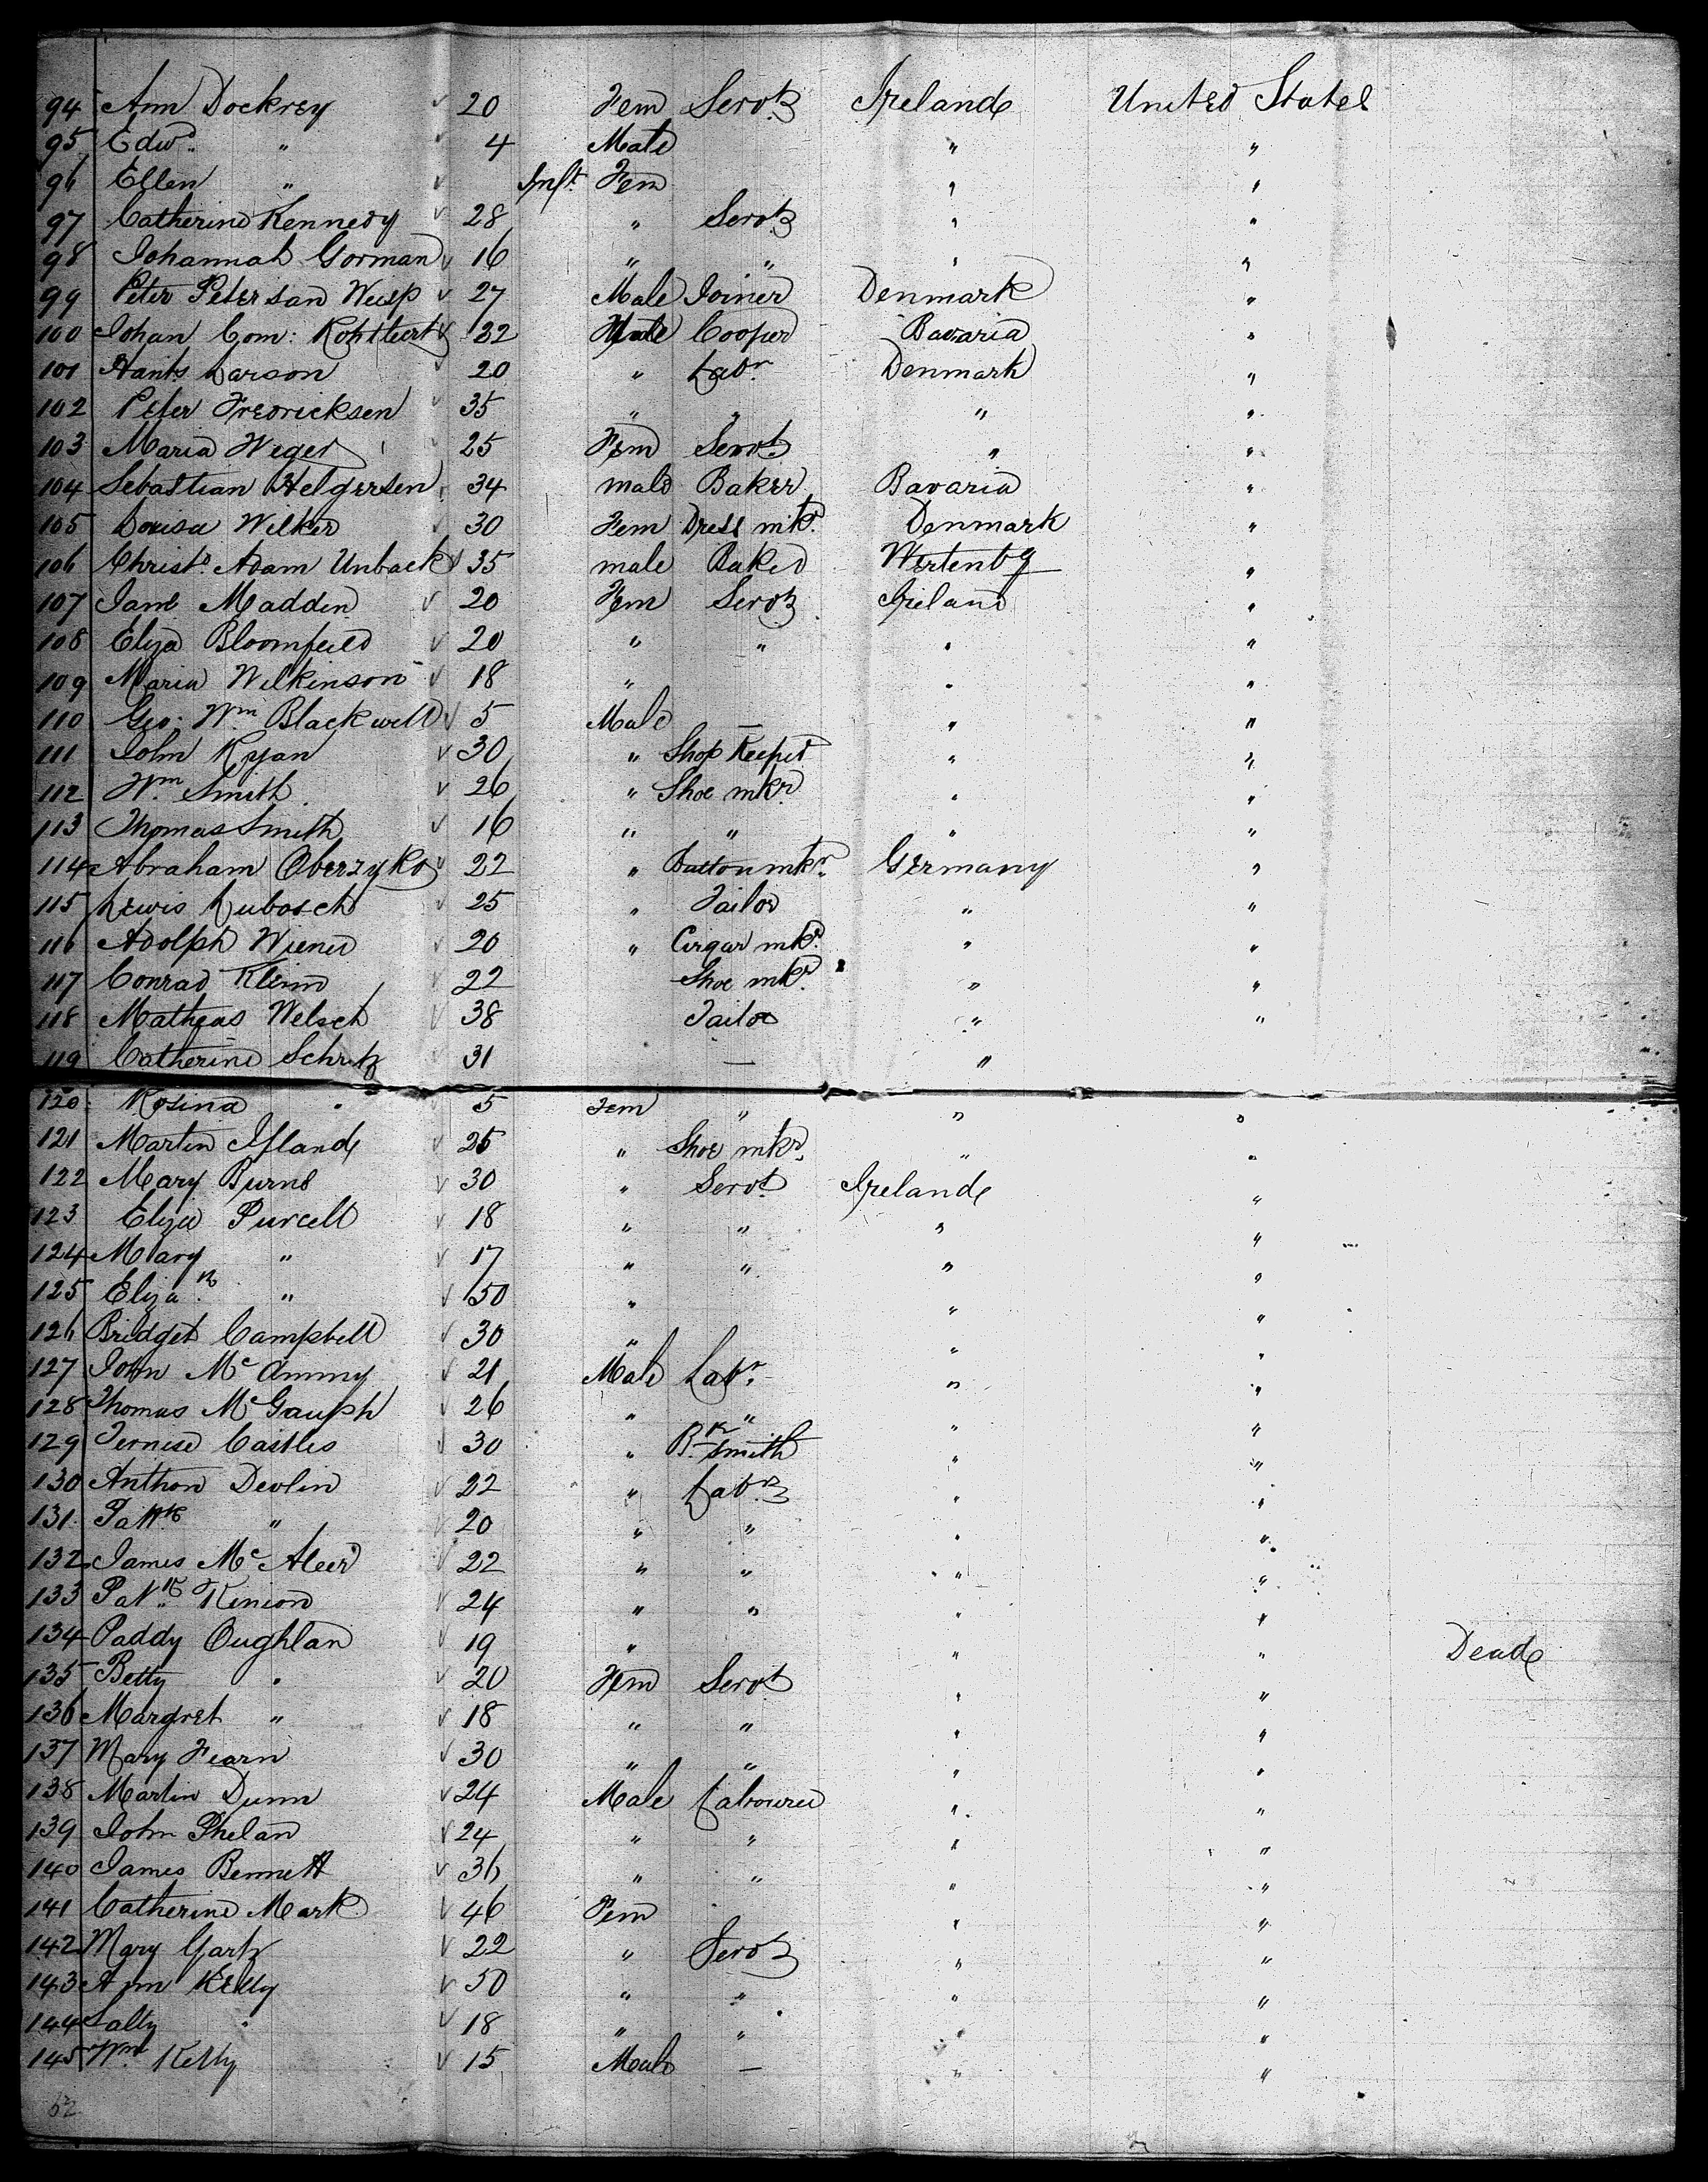 94 Ann Dockrey 20 Fem Servt Ireland United States
95 Edwd " 4 Male " "
96 Ellen " Inft Fem " "
97 Catherine Kennedy 28 " Servt " "
98 Johannah Gorman 16 " " " "
99 Peter Petersan 27 Male Joiner Denmark "
100 Johan Com: 32 Male Cooper Bavaria "
101 Larson 20 " Labr Denmark "
102 Peter Fredricksen 35 " " " "
103 Maria Weger 25 Fem Servt " "
104 Sebastian Helgersen 34 male Baker Bavaria "
105 Louisa Wilker 30 Fem Dress mkr Denmark "
106 Christn Adam Unback 35 male Baker Wertenbg "
107 Jane Madden 20 Fem Servt Ireland "
108 Eliza Bloomfeild 20 " " " "
109 Maria Wilkinson 18 " " "
110 Geo: Wm Blackwell 5 Male — " "
111 John Ryan 30 " Shop Keeper " "
112 Wm Smith 26 " Shoe mkr " "
113 Thomas Smith 16 " " " "
114 Abraham Oberzyko 22 " Button mkr Germany "
115 Lewis Lubosch 25 " Tailor " "
116 Adolph Wiener 20 " Cirgar mkr " "
117 Conrad Kleinn 22 Shoe mkr " "
118 Matheas Welsch 38 Tailor " "
119 Catherine Schutz 31 — "
120 Rosina " 5 Fem " " "
121 Martin Ifland 25 " Shoe mkr " "
122 Mary Burns 30 " Servt Ireland "
123 Eliza Purcell 18 " " " "
124 Mary " 17 " " " "
125 Elizath " 50 " " "
126 Bridget Campbell 30 " " "
127 John McAmmy 21 Male Labr " "
128 Thomas McGaugh 26 " " " "
129 Castles 30 " Bk smith " "
130 Anthon Devlin 22 " Labr " "
131 Patk " 20 " " " "
132 James McAleer 22 " " " "
133 Patk Kinion 24 " " " "
134 Paddy Oughlan 19 " " " Dead
135 Betty " 20 Fem Servt " "
136 Margret " 18 " " " "
137 Mary Fearn 30 " " " "
138 Martin Dunn 24 Male Labourer " "
139 John Phelan 24 " " " "
140 James Bennett 36 " " " "
141 Catherine Mark 46 Fem " "
142 Mary Gartz 22 " Servt " "
143 Ann Kelly 50 " " " "
144 Salty " 18 " " " "
145 Wm Kelly 15 Male — " "
52